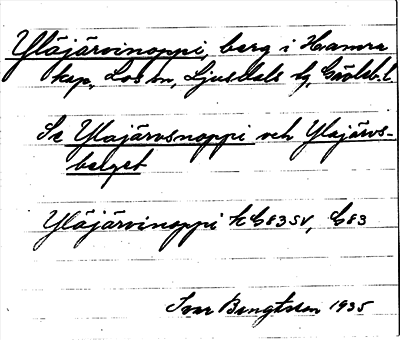 Yläjärvinoppi, berg i Hamra
kap., Los sn, Ljusdals tg, Gävleb. l.
Se Ylajärvsnoppi och Ylajärvs-
berget
Yläjärvinoppi k G83SV, G83
Ivar Bengtsson 1935